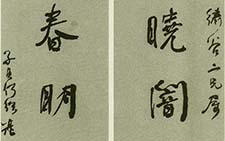 繡谷二兄屬
曉闇
春眀
子貞何紹基